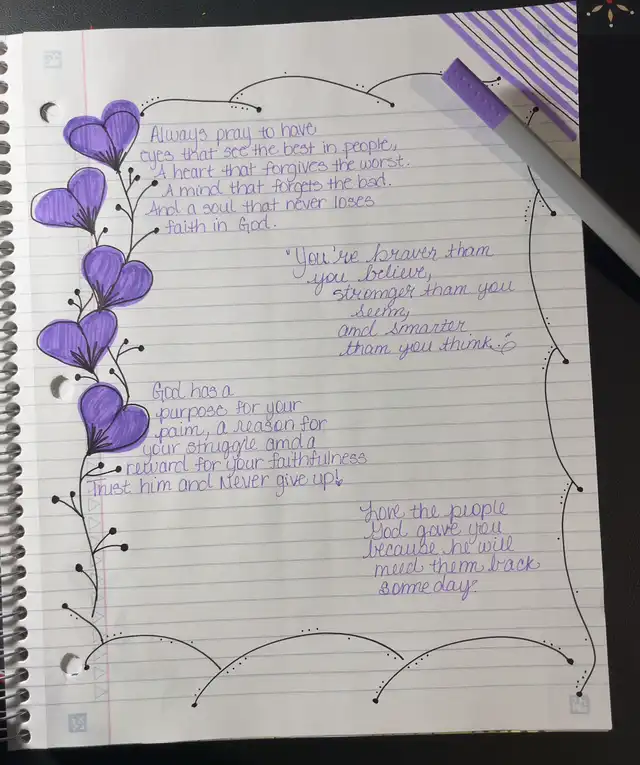 Always pray to have
eyes that see the best in people,
A heart that forgives the worst.
A mind that forgets the bad.
And a soul that never loses
faith in God.
"You're braver tham
you believe,
stronger tham you
seem,
and smarter
tham you think.
God has a
purpose for your
paim, a reason for
your struggle amd a
reward for your faithfulness
Trust him and Never give up!
Love the people
God gave you
because he will
meed them back
someday.